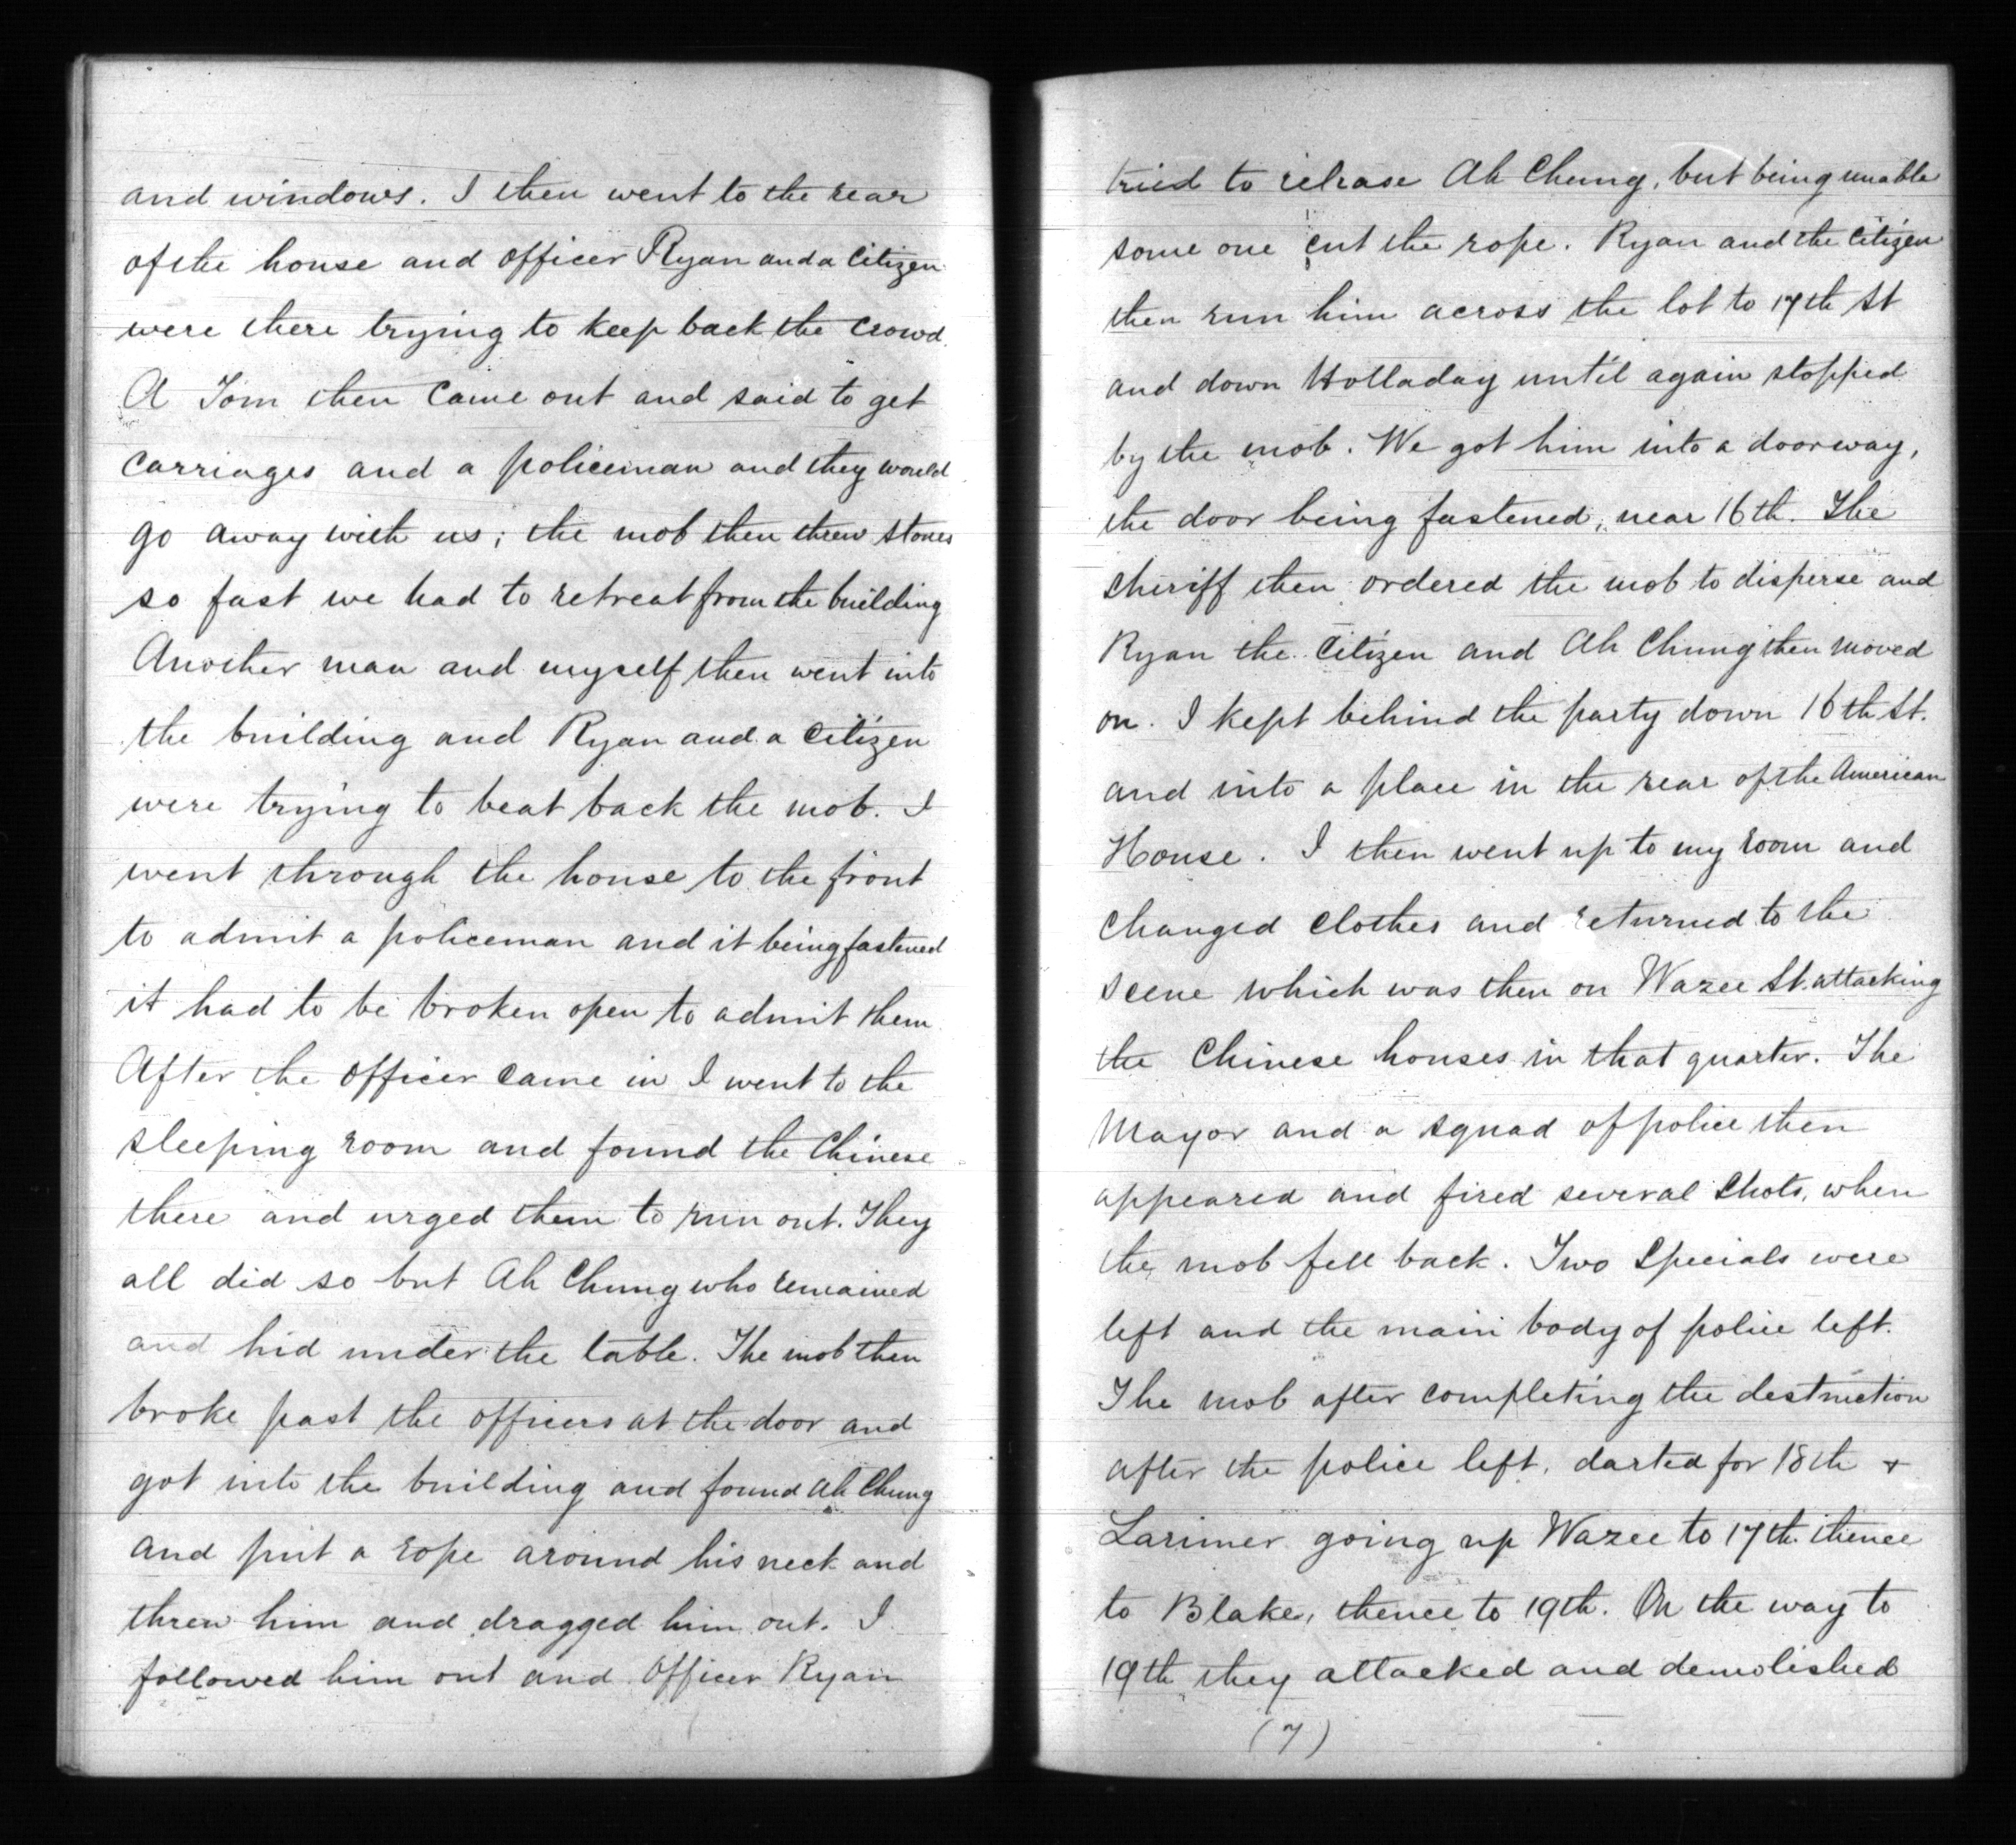 and windows. I then went to the rear
of the house and officer Ryan and a Citizen
were there trying to keep back the crowd.
A Tom then came out and said to get
carriages and a policeman and they would
go away with us; the mob then threw stones
so fast we had to retreat from the building
Another man and myself then went into
the building and Ryan and a Citizen
were trying to beat back the mob. I
went through the house to the front
to admit a policeman and it being fastened
it had to be broken open to admit them
After the officer came in I went to the
sleeping room and found the Chinese
there and urged them to run out. They
all did so but Ah Chung who remained
and hid under the table. The mob then
broke past the officers at the door and
got into the building and found Ah Chung
and put a rope around his neck and
threw him and dragged him out. I
followed him out and Officer Ryan
tried to release Ah Chung, but being unable
some one cut the rope. Ryan and the Citizen
then run him across the lot to 17th St
and down Holladay until again stopped
by the mob. We got him into a doorway,
the door being fastened, near 16th. The
Sheriff then ordered the mob to disperse and
Ryan the Citizen and Ah Chung then moved
on. I kept behind the party down 16th St.
and into a place in the rear of the American
House. I then went up to my room and
changed clothes and returned to the
scene which was then on Wazee St. attacking
the Chinese houses in that quarter. The
Mayor and a squad of police then
appeared and fired several shots, when
the mob fell back. Two Specials were
left and the main body of police left.
The mob after completing the destruction
after the police left, darted for 18th &
Larimer going up Wazee to 17th thence
to Blake, thence to 19th. On the way to
19th they attacked and demolished
(7)